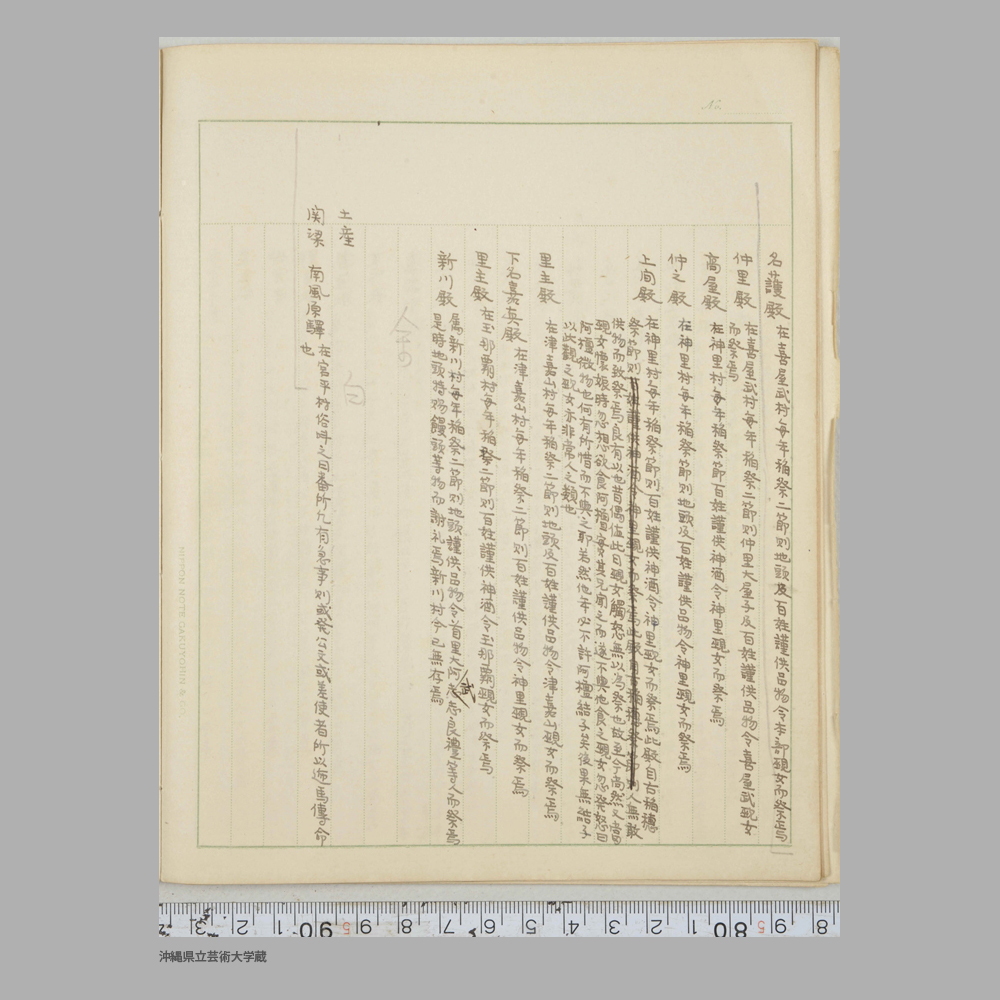 名護殿 在喜屋武村毎年稲祭二節則地頭及百姓謹供品物令本部覡女而祭焉
仲里殿 在喜屋武村毎年稲祭二節則仲里大屋子及百姓謹供品物令喜屋武覡女
而祭焉
高屋殿 在神里村毎年稲祭節百姓謹供神酒令神里覡女而祭焉
仲之殿 在神里村毎年稲祭節則地頭及百姓謹供品物令神里覡女而祭焉
上間殿 在神里村毎年稲祭節則百姓謹供神酒令神里覡女而祭焉此殿自古稲穂
祭節則 人無敢
供物而致祭焉良有以也昔偶值此日覡女觸怒無以為祭也故至今尚然又曽
覡女懐娠時忽想欲食阿檀
阿檀微物也何有所惜而不與之耶若然他年必不許阿檀結子矣後果無結子
以此觀之覡女亦非常人之類也
里主殿 在津嘉山村毎年稲祭二節則地頭及百姓謹供品物令津嘉山覡女而祭焉
下名嘉英殿 在津嘉山村毎年稲祭二節則百姓謹供品物令神里覡女而祭焉
里主殿 在玉那覇村毎年稲祭二節則百姓謹供神酒令玉那覇覡女而祭焉
新川殿 属新川村毎年稲祭二節則地頭謹供品物令首里大阿志良禮等 人而祭焉
是時地頭 賜饅頭等物而謝礼焉新川村今已無存焉
土産
関梁 南風原驛 在宮平村俗呼之曰番所凡有急事則或発公文或差使者所以逓馬傳命
也
NIPPON NOTE GAKUYOHIN
No.
8 80 1 2 3 4 5 6 7 8 90 1 2 3
沖縄県立芸術大学蔵